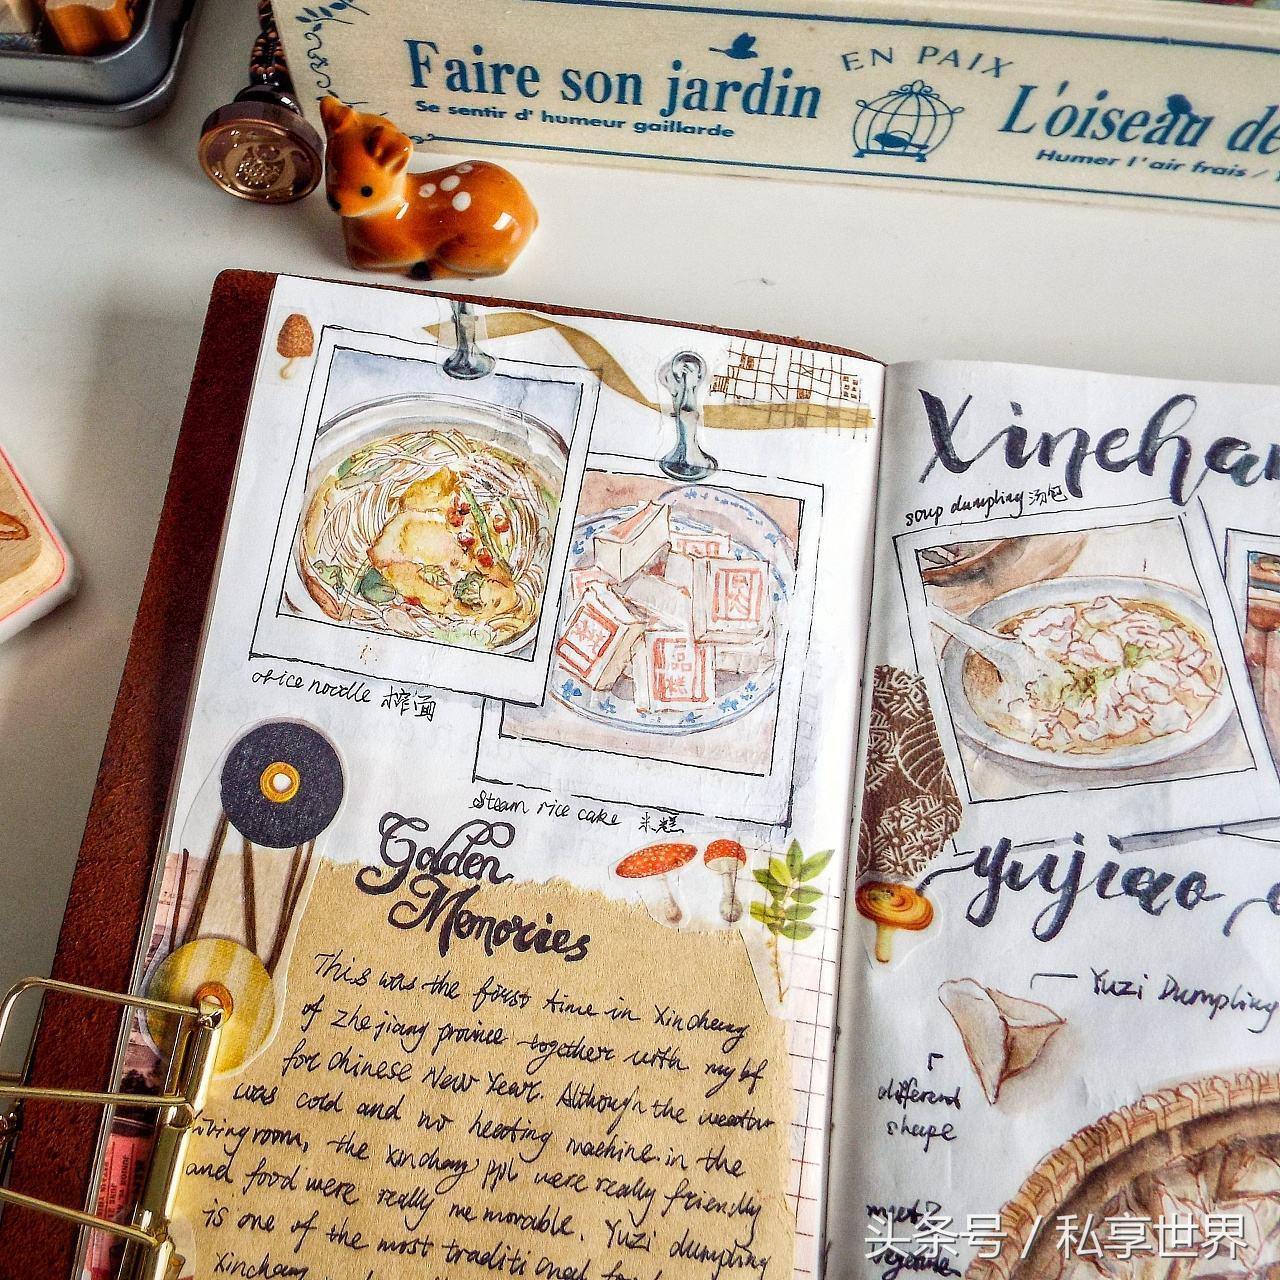 Faire son jardin
Se sentir d' humeur gaillarde
EN PAIX
L'oiseau de
Humer l'air frais /
rice noodle 榨面
steam rice cake 米糕
Golden
Memories
This was the first time in Xinchang
of Zhejiang province together with my bf
for chinese New Year. Although the weather
was cold and no heating machine in the
livingroom, the xinchang ppl were really friendly
and food were really memorable. Yuzi dumpling
is one of the most traditional
Xinchang
Xinchan
soup dumpling 汤包
yujiao
Yuzi Dumpling
different
shape
头条号 / 私享世界